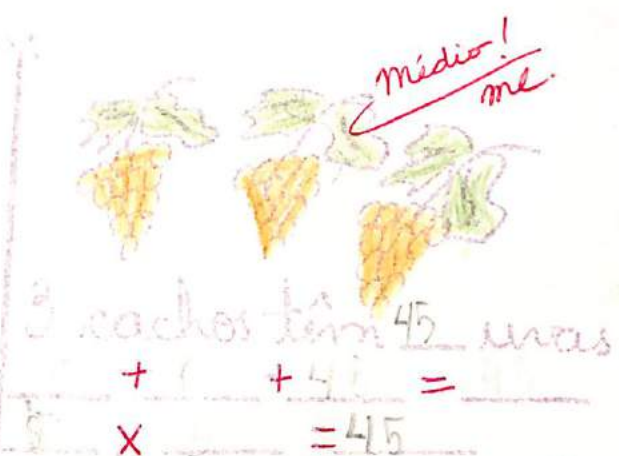 Médio!
me.
3 cachos têm 45 uvas
+ + 4 =
X = 45